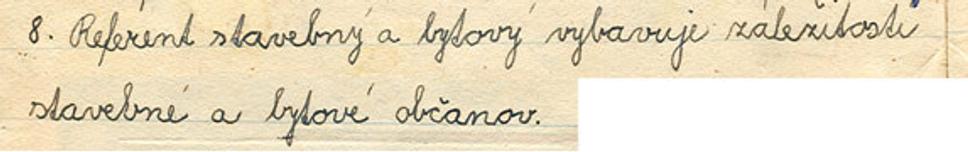 8. Referent stavebný a bytový vybavuje záležitosti
stavebné a bytové občanov.